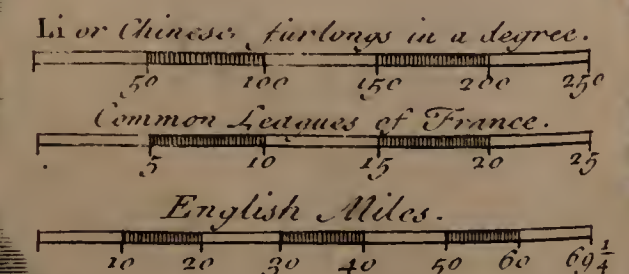 Li or Chinese, furlongs in a degree.
50 100 150 200 250
Common Leagues of France.
5 10 15 20 25
English Miles.
10 20 30 40 50 60 69 1/4